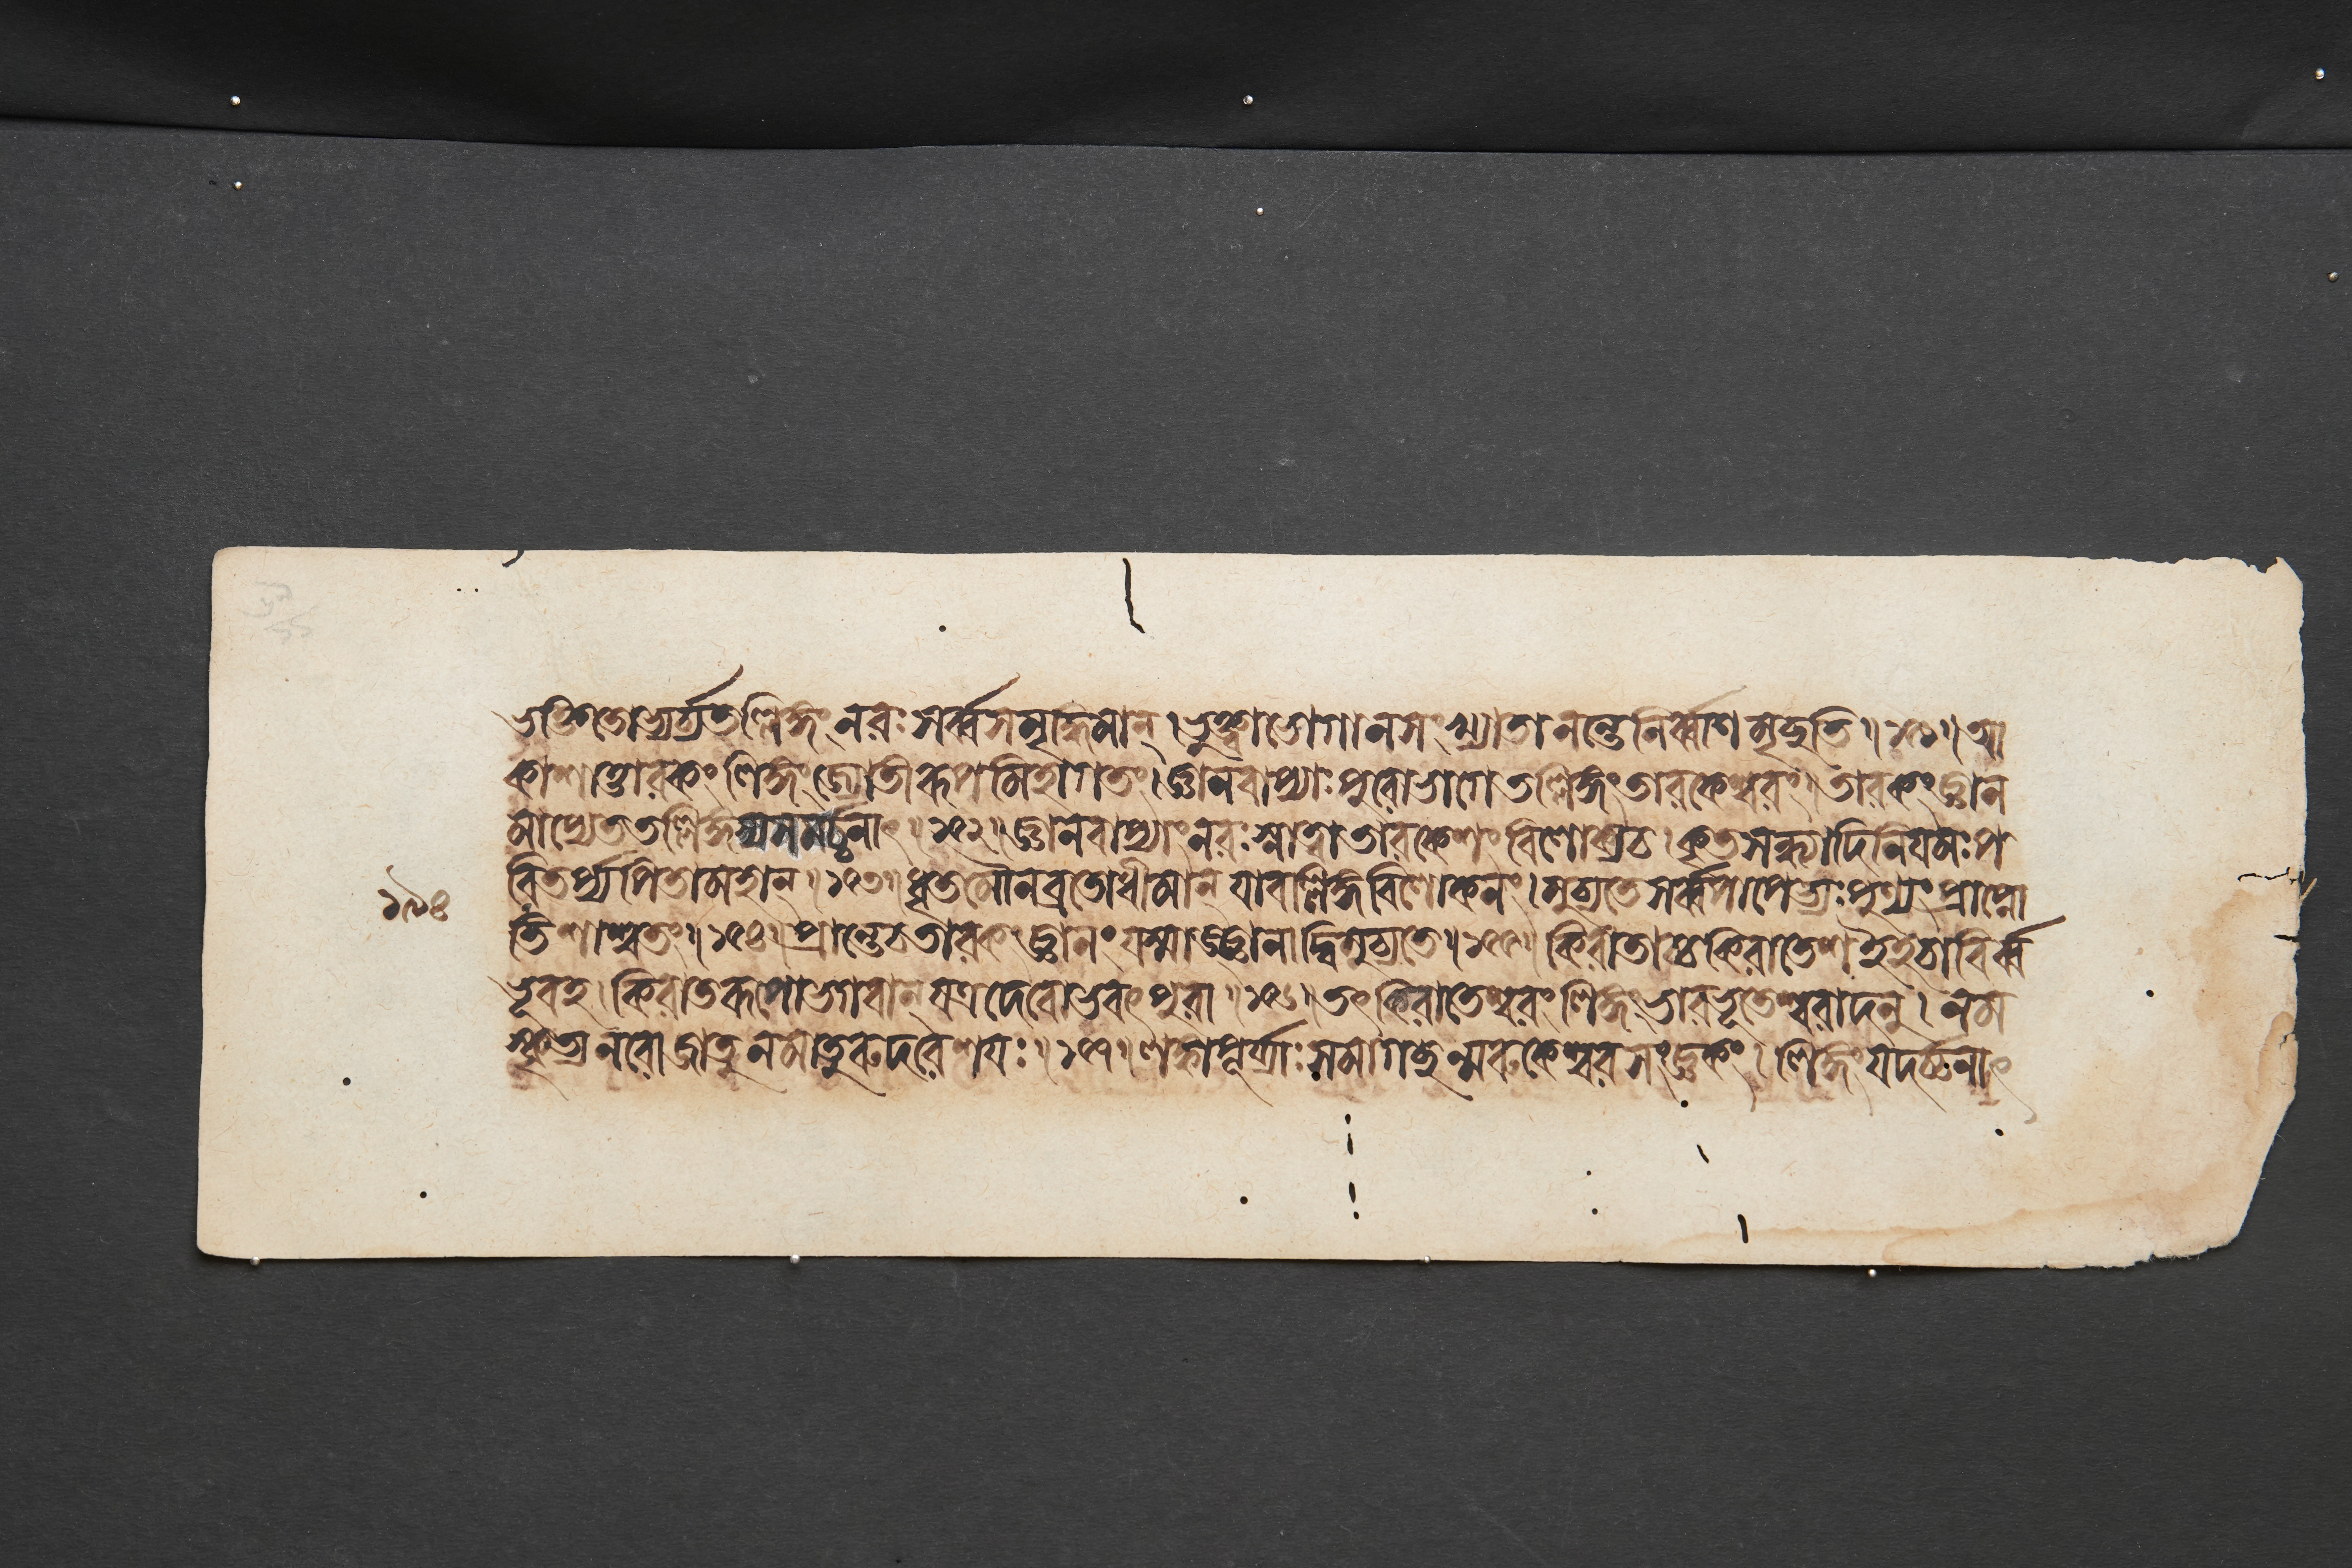 ভক্তিতোভ্যর্চ্চ্য তল্লিঙ্গং নরঃ সর্ব্বসমৃদ্ধিমান্। ভুক্ত্বা ভোগানসংখ্যাতানন্তে নির্ব্বাণমৃচ্ছতি॥ ১৫১॥ আ
কাশাত্তারকং লিঙ্গং জ্যোতীরূপমিহাগতং। জ্ঞানবাপ্যাঃ পুরোভাগে তল্লিঙ্গং তারকেশ্বরং। তারকং জ্ঞান
মাপ্যেত তল্লিঙ্গস্য সমর্চ্চনাৎ॥ ১৫২॥ জ্ঞানবাপ্যাং নরঃ স্নাত্বা তারকেশং বিলোক্য চ। কৃতসন্ধ্যাদিনিয়মঃ প
রিতর্প্য পিতামহান্॥ ১৫৩॥ ধৃতমৌনব্রতোধীমান্ যাবল্লিঙ্গবিলোকনং। মুচ্যতে সর্ব্বপাপেভ্যঃ পুণ্যং প্রাপ্নো
তি শাশ্বতং॥ ১৫৪॥ প্রান্তে চ তারকং জ্ঞানং যস্মাজ্জ্ঞানাদ্বিমুচ্যতে॥ ১৫৫॥ কিরাতাচ্চ কিরাতেশ ইহচাবির্ব্ব
ভূবহ। কিরাতরূপো ভগবান্ যত্র দেবোভবৎ পুরা॥ ১৫৬॥ তৎ কিরাতেশ্বরং লিঙ্গং ভারভূতেশ্বরাদনু। নম
স্কৃত্য নরো জাতু ন মাতুরুদরেশয়ঃ॥ ১৫৭॥ লঙ্কাপূর্য্যাঃ সমাগচ্ছন্মরুকেশ্বরসংজ্ঞকং। লিঙ্গং যদর্চ্চনাৎ
১৯৪